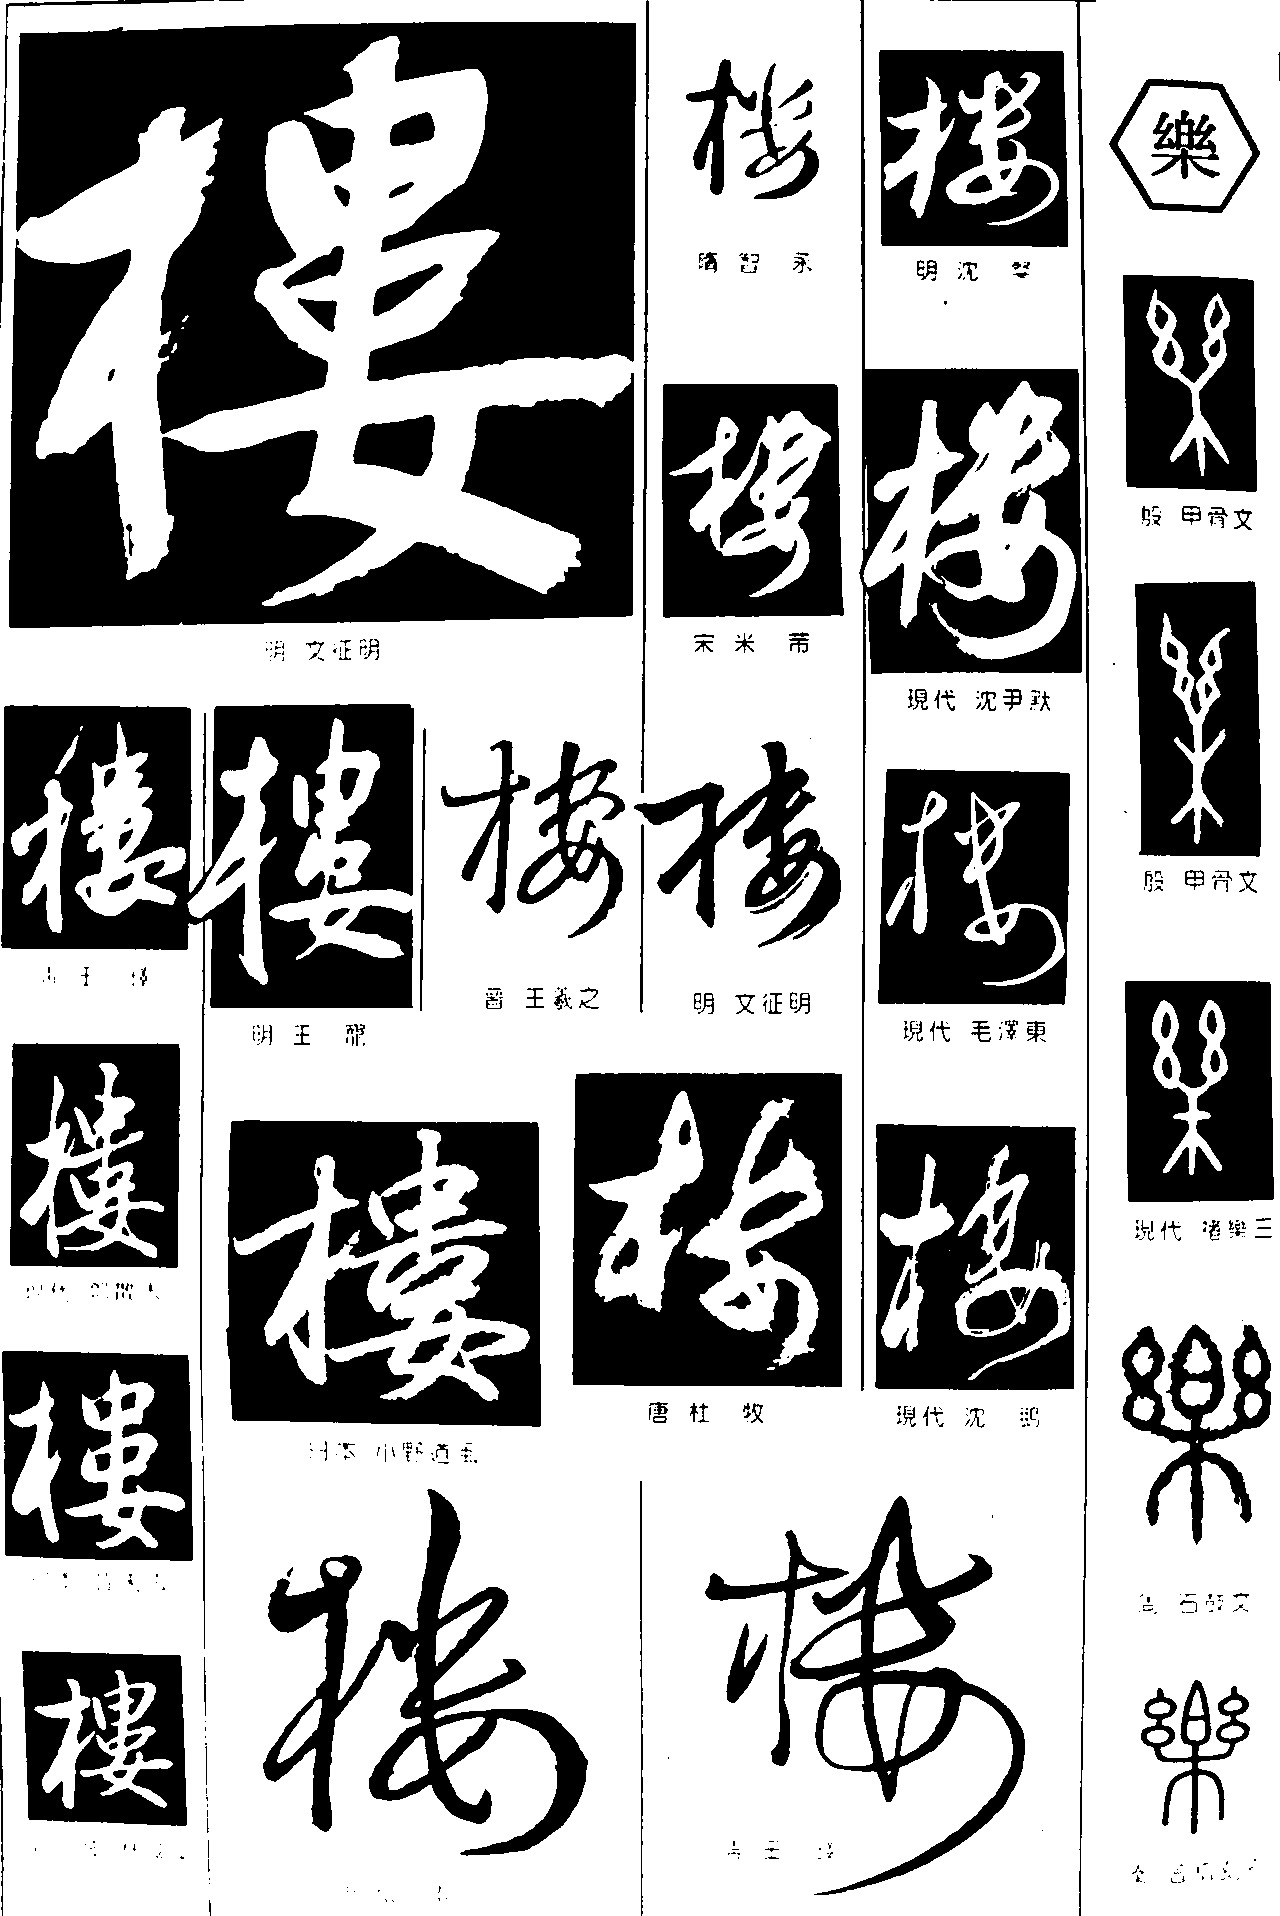 樓
明 文征明
樓
樓
明 王 龍
樓
晉 王羲之
樓
樓
樓
樓
日本 小野道風
樓
樓
隋 智 永
樓
宋 米 芾
樓
明 文征明
樓
唐 杜 牧
樓
樓
明 沈 粲
樓
現代 沈尹默
樓
現代 毛澤東
樓
現代 沈 鵬
樂
樂
殷 甲骨文
樂
殷 甲骨文
樂
現代 諸樂三
樂
周 石鼓文
樂